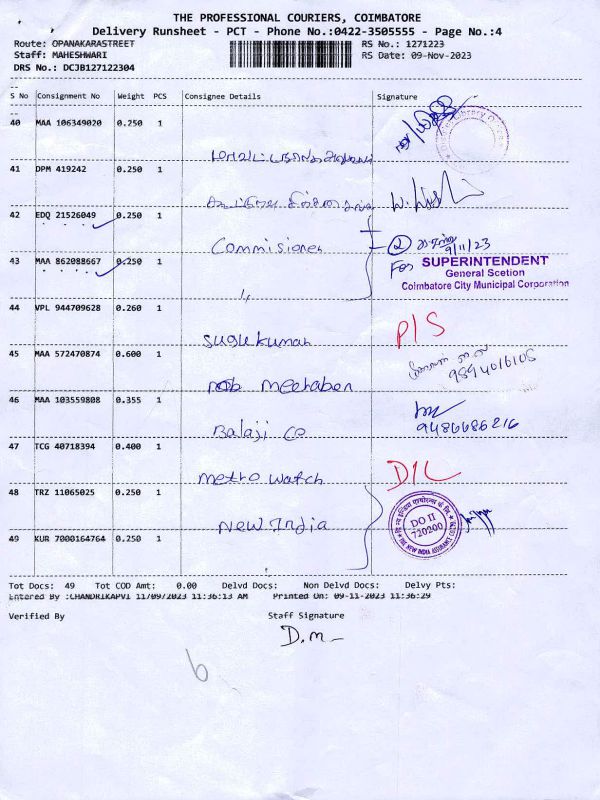 THE PROFESSIONAL COURIERS, COIMBATORE
Delivery Runsheet - PCT - Phone No.:0422-3505555 - Page No.:4
Route: OPANAKARASTREET
RS No.: 1271223
Staff: MAHESHWARI
RS Date: 09-Nov-2023
DRS No.: DCJB127122304
S No Consignment No Weight PCS Consignee Details Signature
40 MAA 106349020 0.250 1
41 DPM 419242 0.250 1
42 EDQ 21526049 0.250 1
Commisioner
2
9/11/23
43 MAA 862088667 0.250 1
For SUPERINTENDENT
General Scetion
Coimbatore City Municipal Corporation
44 VPL 944709628 0.260 1
Sugukumar P/S
45 MAA 572470874 0.600 1
Meetaben
9894016105
46 MAA 103559808 0.355 1
Balaji Co
9486686216
47 TCG 40718394 0.400 1
Metro Watch D/L
48 TRZ 11065025 0.250 1
New India
DO II
720200
THE NEW INDIA ASSURANCE CO LTD
49 KUR 7000164764 0.250 1
Tot Docs: 49 Tot COD Amt: 0.00 Delvd Docs: Non Delvd Docs: Delvy Pts:
Entered By :CHANDRIKAPVI 11/09/2023 11:36:13 AM Printed On: 09-11-2023 11:36:29
Verified By Staff Signature
D.M
6